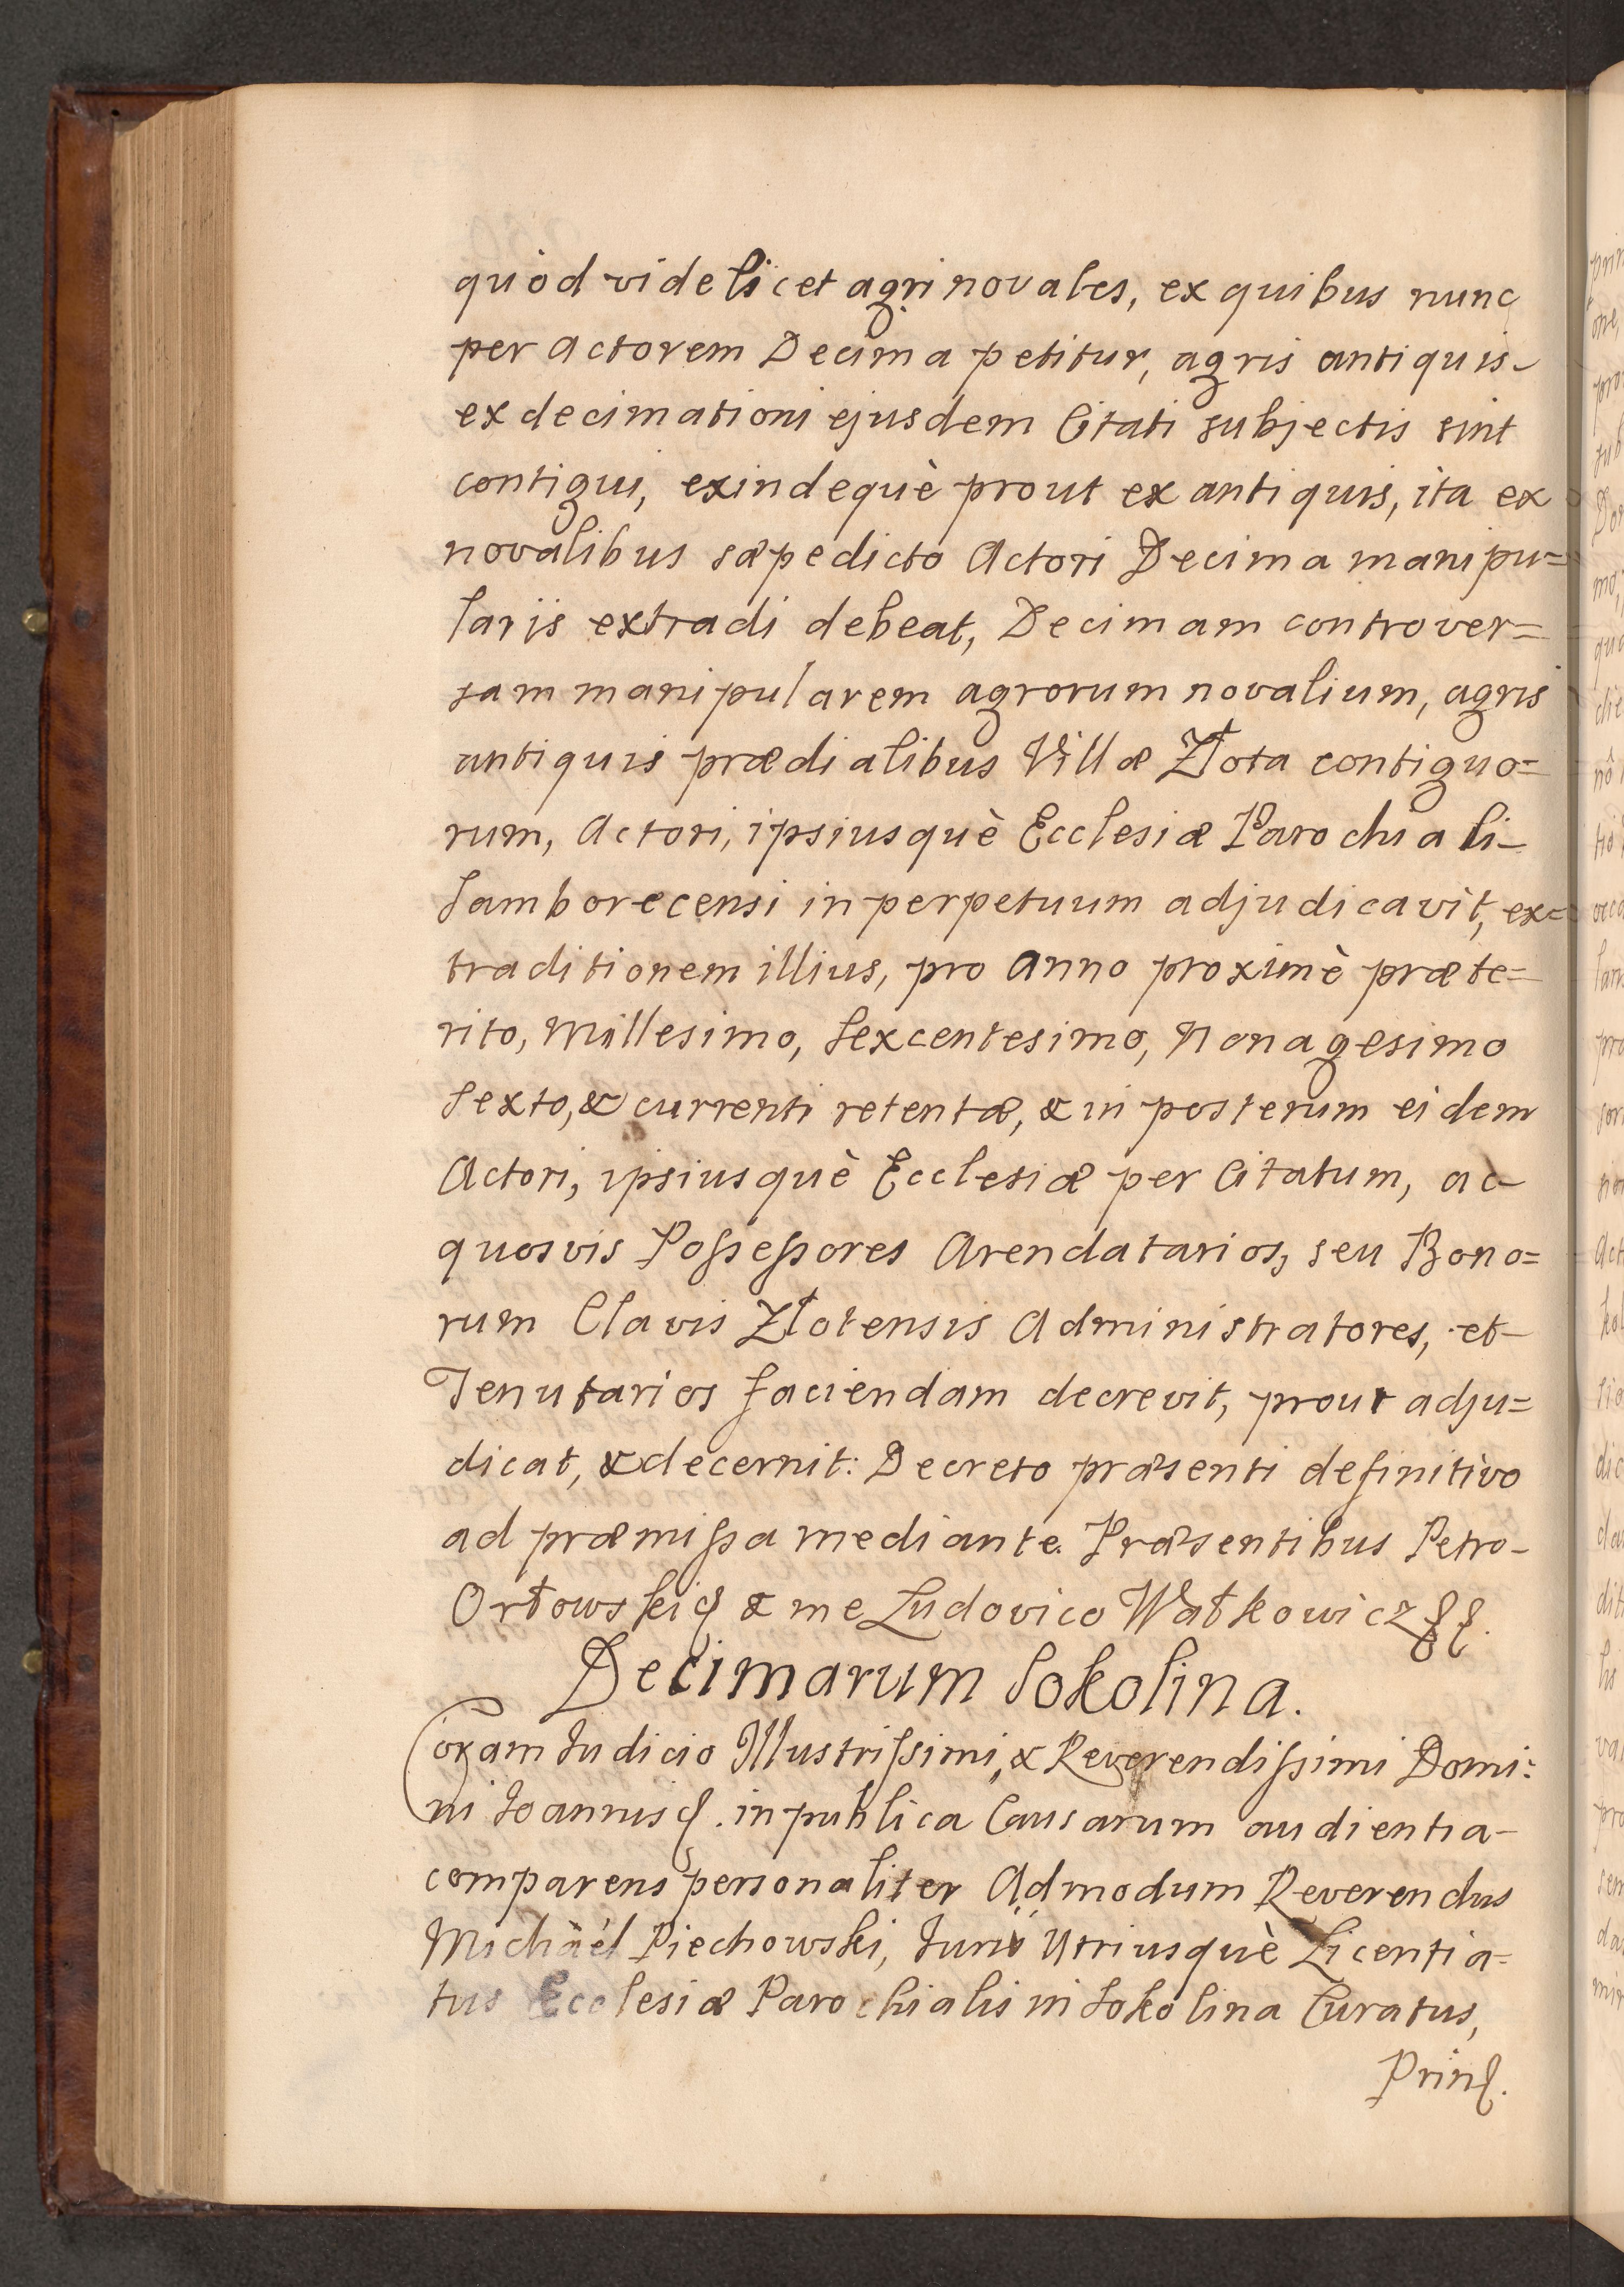 quòd videlicet agri novales, ex quibus nunc
per Actorem Decima petitur, agris antiquis
ex decimationi ejusdem Citati subjectis sint
contigui, exindequè prout ex antiquis, ita ex
novalibus sæpedicto Actori Decima manipu=
laris extradi debeat, Decimam controver=
sam manipularem agrorum novalium, agris
antiquis prædialibus Villæ Złota contiguo=
rum, Actori, ipsiusquè Ecclesiæ Parochiali
Samborecensi in perpetuum adjudicavit, ex=
traditionem illius, pro Anno proximè præte=
rito, Millesimo, Sexcentesimo, Nonagesimo
Sexto, & currenti retentæ, & in posterum eidem
Actori, ipsiusquè Ecclesiæ per Citatum, ac
quosvis Possessores Arendatarios, seu Bono=
rum Clavis Złotensis Administratores, et
Tenutarios faciendam decrevit, prout adju=
dicat, & decernit: Decreto præsenti definitivo
ad præmissa mediante. Præsentibus Petro
Orłowski & me Ludovico Wałkowicz
Decimarum Sokolina.
Coram Iudicio Illustrissimi, & Reverendissimi Domi:
ni Ioannis in publica Causarum audientia
comparens personaliter Admodum Reverendus
Michaél Piechowski, Iuris Utriusquè Licentia=
tus Ecclesiæ Parochialis in Sokolina Curatus,
Prin